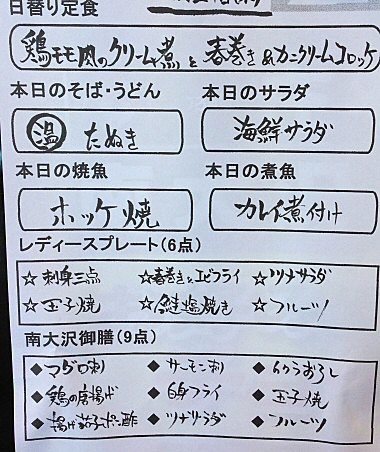 日替り定食
鶏モモ肉のクリーム煮と春巻き&カニクリームコロッケ
本日のそば・うどん 本日のサラダ
温 たぬき 海鮮サラダ
本日の焼魚 本日の煮魚
ホッケ焼 カレイ煮付け
レディースプレート(6点)
☆刺身三点 ☆春巻きとエビフライ ☆ツナサラダ
☆玉子焼 ☆鮭塩焼き ☆フルーツ
南大沢御膳(9点)
◆マグロ刺 ◆サーモン刺 ◆イクラおろし
◆鶏の唐揚げ ◆白身フライ ◆玉子焼
◆揚げ茄子ポン酢 ◆ツナサラダ ◆フルーツ